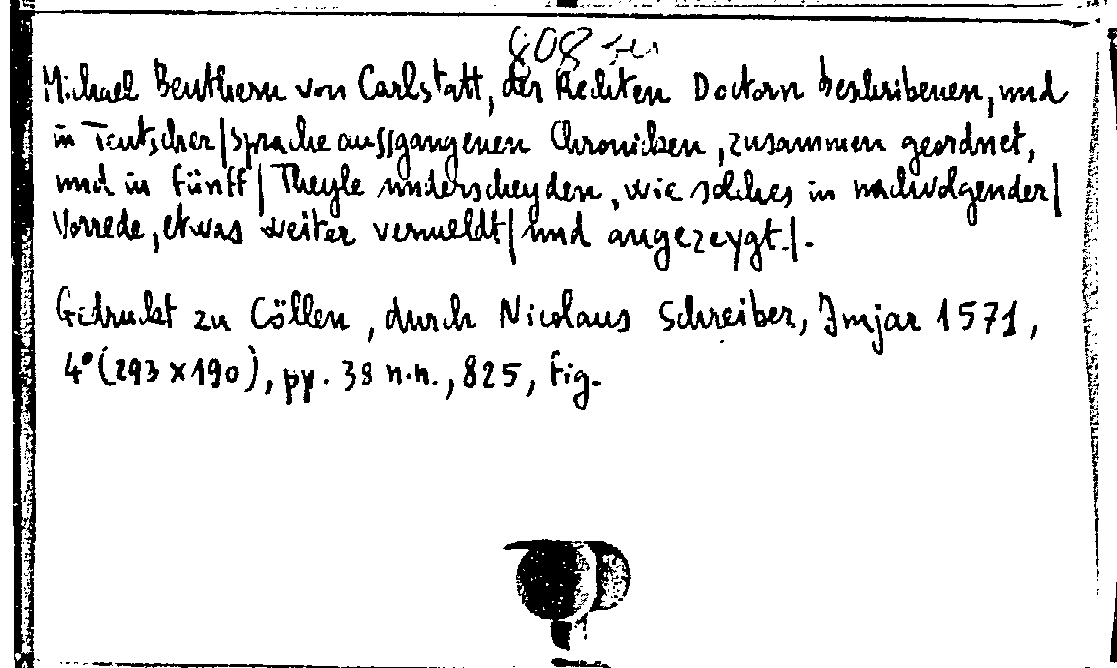 808
Michael Beuthern von Carlstatt, der Rechten Doctorn beschribenen, und
in Teutscher | Sprache aussgangenen Chronicken, zusammen geordnet,
und in fünff | Theyle underscheyden, wie solches in nachvolgender |
Vorrede, etwas weiter vermeldt | und angezeygt. | .
Gedruckt zu Cöllen, durch Nicolaus Schreiber, Imjar 1571,
4° (293 x 190), pp. 38 n.n., 825, fig.